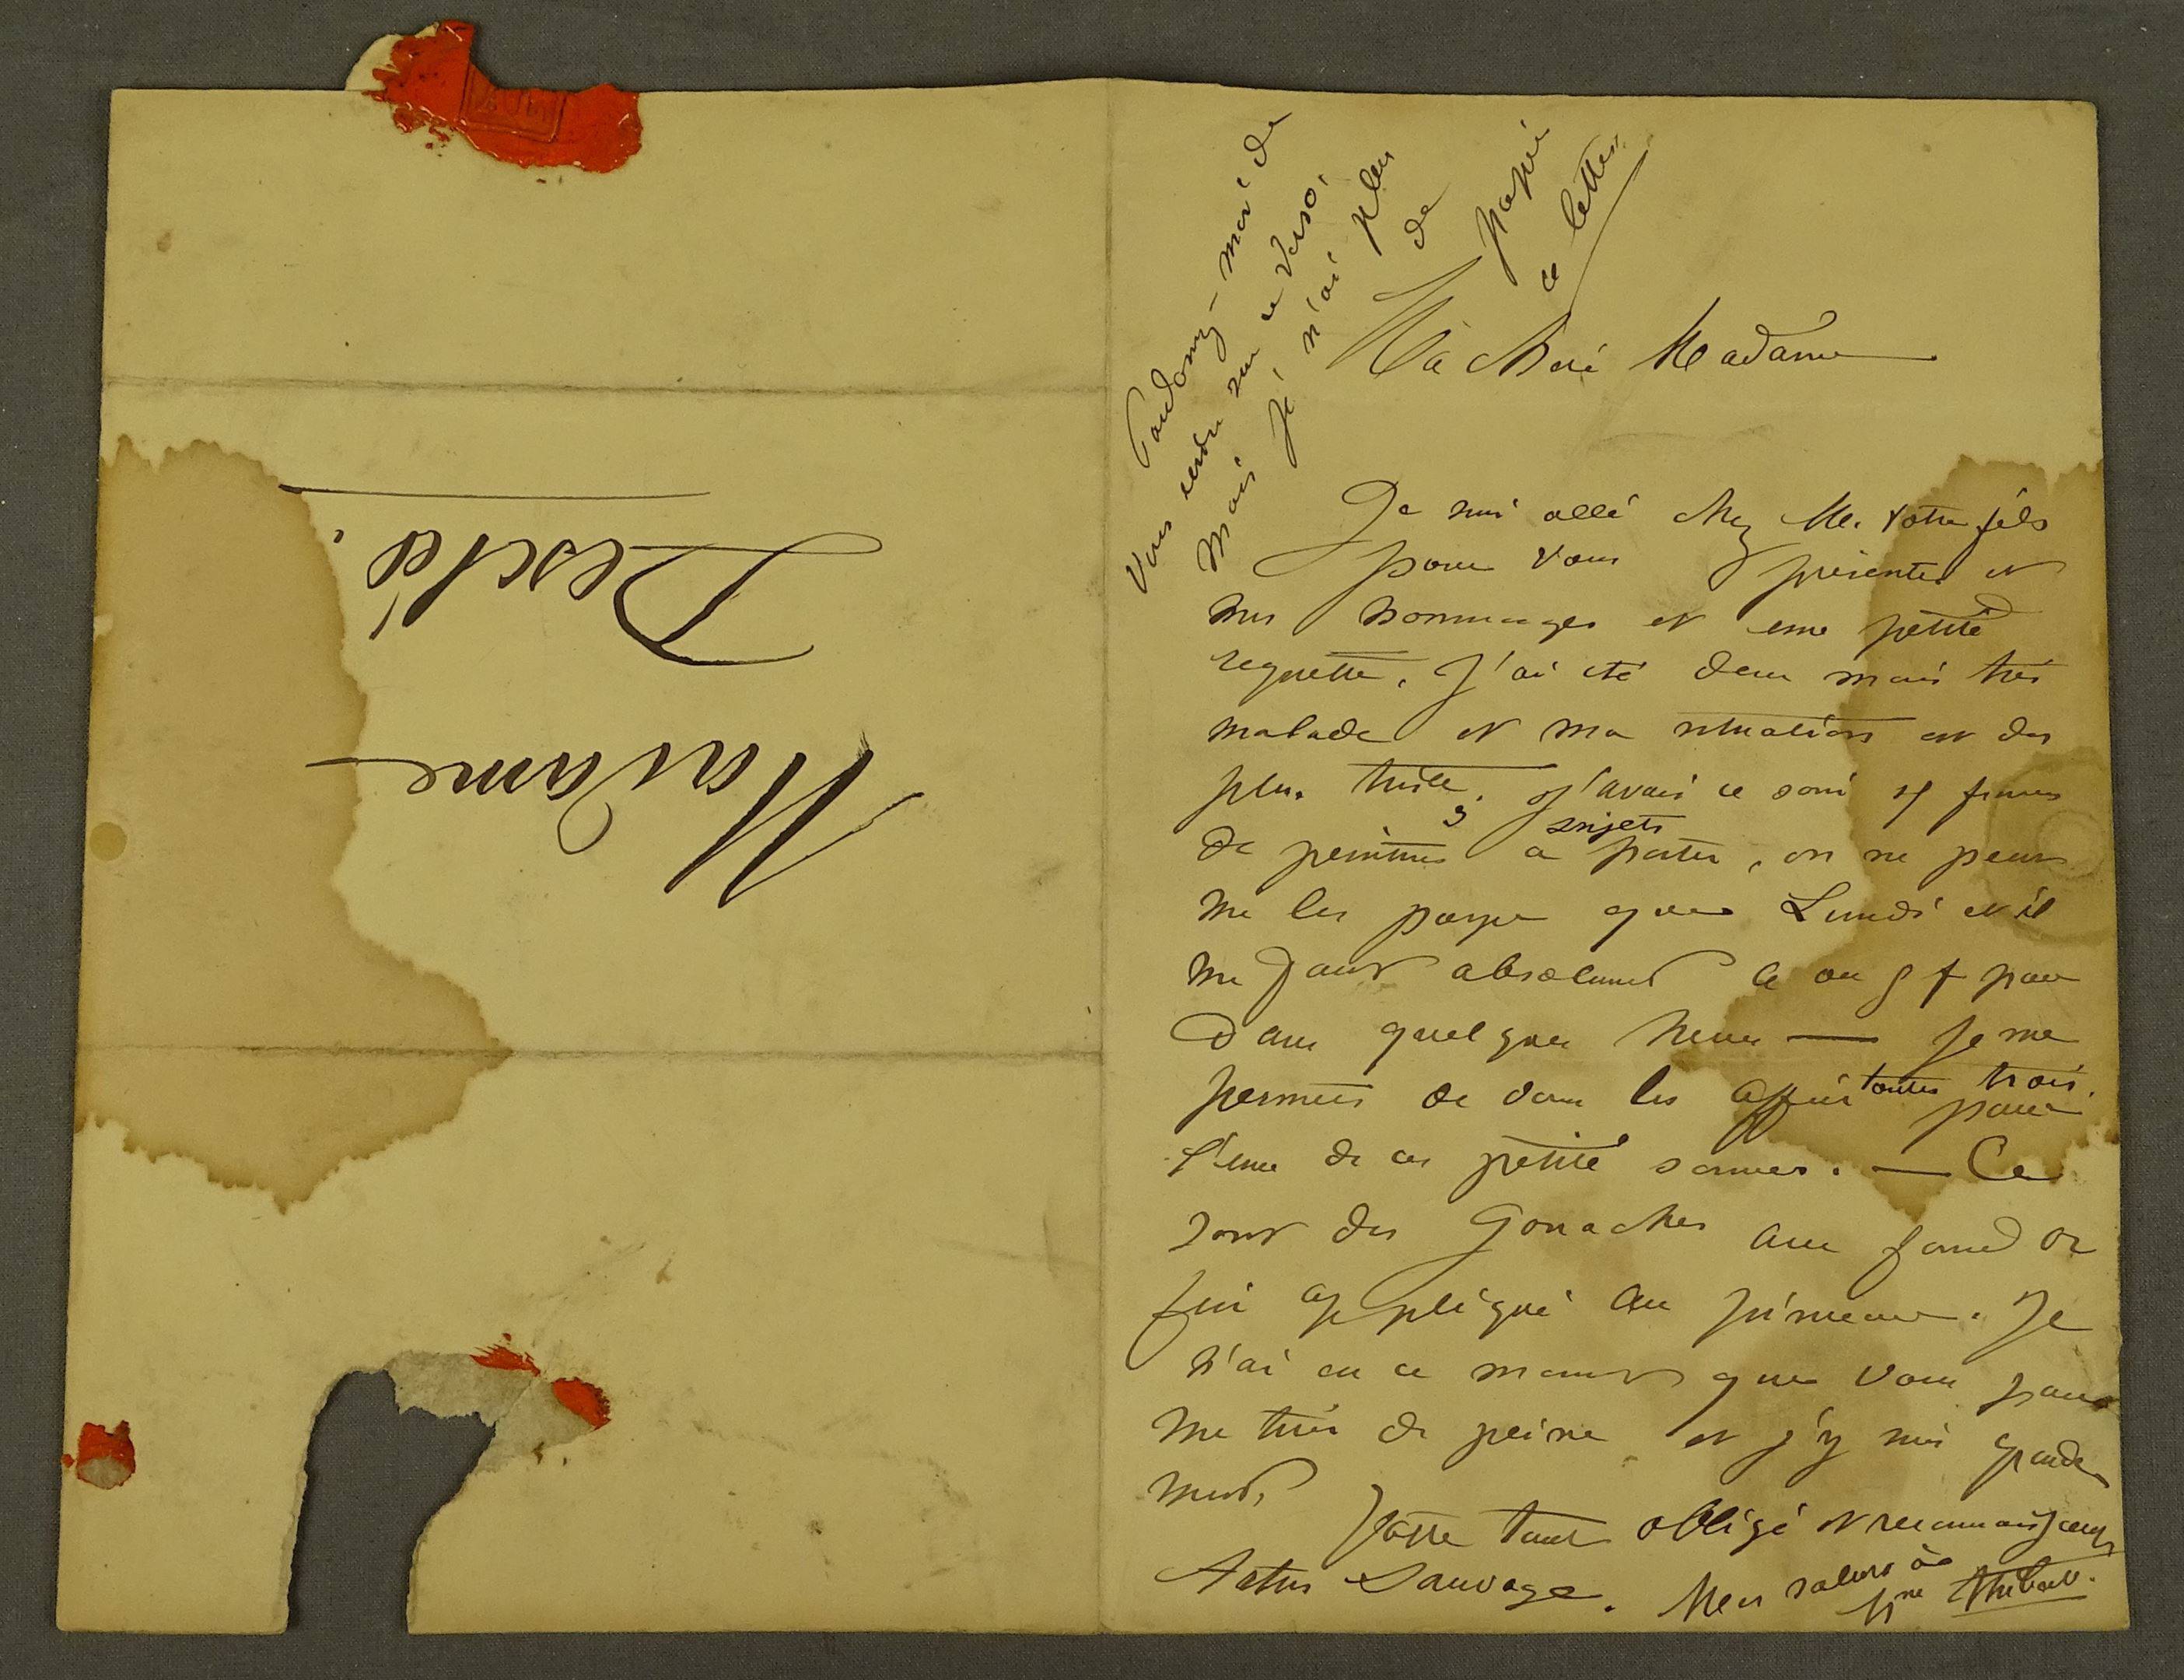 Madame
Desclée.
Pardonnez-moi de
vous  sur ce verso,
mais je n'ai plus
de
papier
a lettres
Ma chere Madame
Je suis allé chez Mr. votre fils
pour vous présenter et
mes hommages et une petite
requette. J'ai été deux mois très
malade et ma situation est des
plus triste. J'avais ce soir
de peintures 3 sujets a porter, on ne peut
me les payer que Lundi et il
me faut absolument pour
dans quelques heures — Je me
permets de vous les offrir toutes trois pour
l'une de ces petite sommes. — Ce
sont des Gouaches aux fond or
fin appliqué au pinceau. Je
n'ai en ce moment que vous pour
me tirer de peine et j'y suis grande
ment,
Votre tout obligé et reconnaissant
 Sauvage. Mes saluts à
Mme